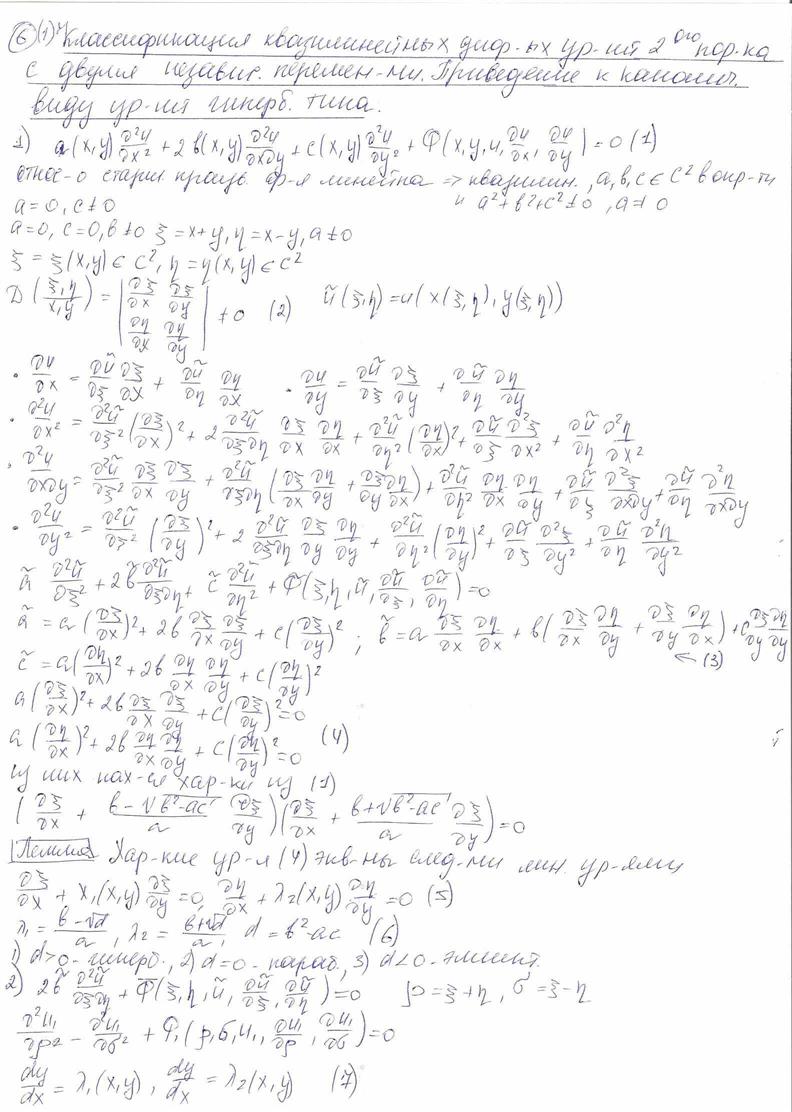 ⑥ (1) Классификация квазилинейных диф-ых ур-ий 2ого пор-ка
с двумя независ. перемен-ми. Приведение к канонич.
виду ур-ия гиперб. типа.
1) a(x,y) ∂²u/∂x² + 2b(x,y) ∂²u/∂x∂y + c(x,y) ∂²u/∂y² + Φ(x,y,u,∂u/∂x,∂u/∂y) = 0 (1)
относ-о старш произв. ф-я линейна => квазилин., a,b,c ∈ C² в окр-ти
a=0, c≠0 и a²+b²+c²≠0, a≠0
a=0, c=0, b≠0 ξ=x+y, η=x-y, a≠0
ξ = ξ(x,y) ∈ C², η = η(x,y) ∈ C²
D(ξ,η / x,y) = |∂ξ/∂x ∂ξ/∂y; ∂η/∂x ∂η/∂y| ≠ 0 (2) ũ(ξ,η) = u(x(ξ,η), y(ξ,η))
• ∂u/∂x = ∂ũ/∂ξ ∂ξ/∂x + ∂ũ/∂η ∂η/∂x • ∂u/∂y = ∂ũ/∂ξ ∂ξ/∂y + ∂ũ/∂η ∂η/∂y
• ∂²u/∂x² = ∂²ũ/∂ξ² (∂ξ/∂x)² + 2 ∂²ũ/∂ξ∂η ∂ξ/∂x ∂η/∂x + ∂²ũ/∂η² (∂η/∂x)² + ∂ũ/∂ξ ∂²ξ/∂x² + ∂ũ/∂η ∂²η/∂x²
• ∂²u/∂x∂y = ∂²ũ/∂ξ² ∂ξ/∂x ∂ξ/∂y + ∂²ũ/∂ξ∂η (∂ξ/∂x ∂η/∂y + ∂ξ/∂y ∂η/∂x) + ∂²ũ/∂η² ∂η/∂x ∂η/∂y + ∂ũ/∂ξ ∂²ξ/∂x∂y + ∂ũ/∂η ∂²η/∂x∂y
• ∂²u/∂y² = ∂²ũ/∂ξ² (∂ξ/∂y)² + 2 ∂²ũ/∂ξ∂η ∂ξ/∂y ∂η/∂y + ∂²ũ/∂η² (∂η/∂y)² + ∂ũ/∂ξ ∂²ξ/∂y² + ∂ũ/∂η ∂²η/∂y²
ã ∂²ũ/∂ξ² + 2b̃ ∂²ũ/∂ξ∂η + c̃ ∂²ũ/∂η² + Φ̃(ξ,η,ũ,∂ũ/∂ξ,∂ũ/∂η) = 0
ã = a(∂ξ/∂x)² + 2b ∂ξ/∂x ∂ξ/∂y + c(∂ξ/∂y)²; b̃ = a ∂ξ/∂x ∂η/∂x + b(∂ξ/∂x ∂η/∂y + ∂ξ/∂y ∂η/∂x) + c ∂ξ/∂y ∂η/∂y
c̃ = a(∂η/∂x)² + 2b ∂η/∂x ∂η/∂y + c(∂η/∂y)² ← (3)
a(∂ξ/∂x)² + 2b ∂ξ/∂x ∂ξ/∂y + c(∂ξ/∂y)² = 0
a(∂η/∂x)² + 2b ∂η/∂x ∂η/∂y + c(∂η/∂y)² = 0 (4)
из них нах-ся хар-ки из (1)
(∂ξ/∂x + (b-√(b²-ac))/a ∂ξ/∂y)(∂ξ/∂x + (b+√(b²-ac))/a ∂ξ/∂y) = 0
Лемма Хар-кие ур-я (4) экв-ны след-ми лин. ур-ями
∂ξ/∂x + λ₁(x,y) ∂ξ/∂y = 0, ∂η/∂x + λ₂(x,y) ∂η/∂y = 0 (5)
λ₁ = (b-√d)/a, λ₂ = (b+√d)/a, d = b²-ac (6)
1) d>0 - гиперб., 2) d=0 - параб., 3) d<0 - эллипт.
2) 2b̃ ∂²ũ/∂ξ∂η + Φ̃(ξ,η,ũ,∂ũ/∂ξ,∂ũ/∂η) = 0 ρ=ξ+η, σ=ξ-η
∂²u₁/∂ρ² - ∂²u₁/∂σ² + Φ₁(ρ,σ,u₁,∂u₁/∂ρ,∂u₁/∂σ) = 0
dy/dx = λ₁(x,y), dy/dx = λ₂(x,y) (7)